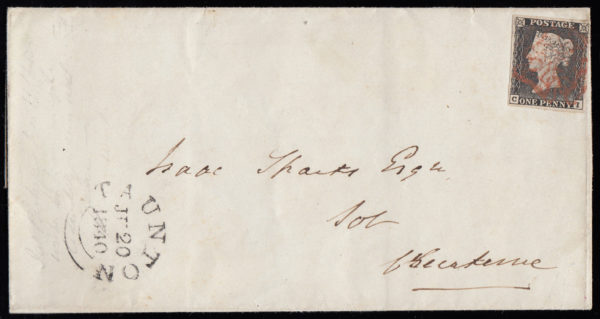 POSTAGE
ONE PENNY
Isaac Sparks Esqre
Sol
Crewkerne
TAUNTON
JU 20
1840